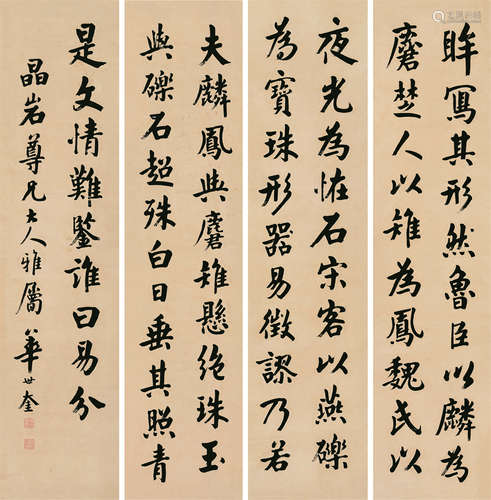 眸寫其形然魯臣以麟為
麏楚人以雉為鳳魏民以
夜光為恠石宋客以燕礫
為寶珠形器易徵謬乃若
夫麟鳳與麏雉懸絕珠玉
與礫石超殊白日垂其照青
是文情難鑒誰曰易分
晶岩尊兄大人雅屬 華世奎